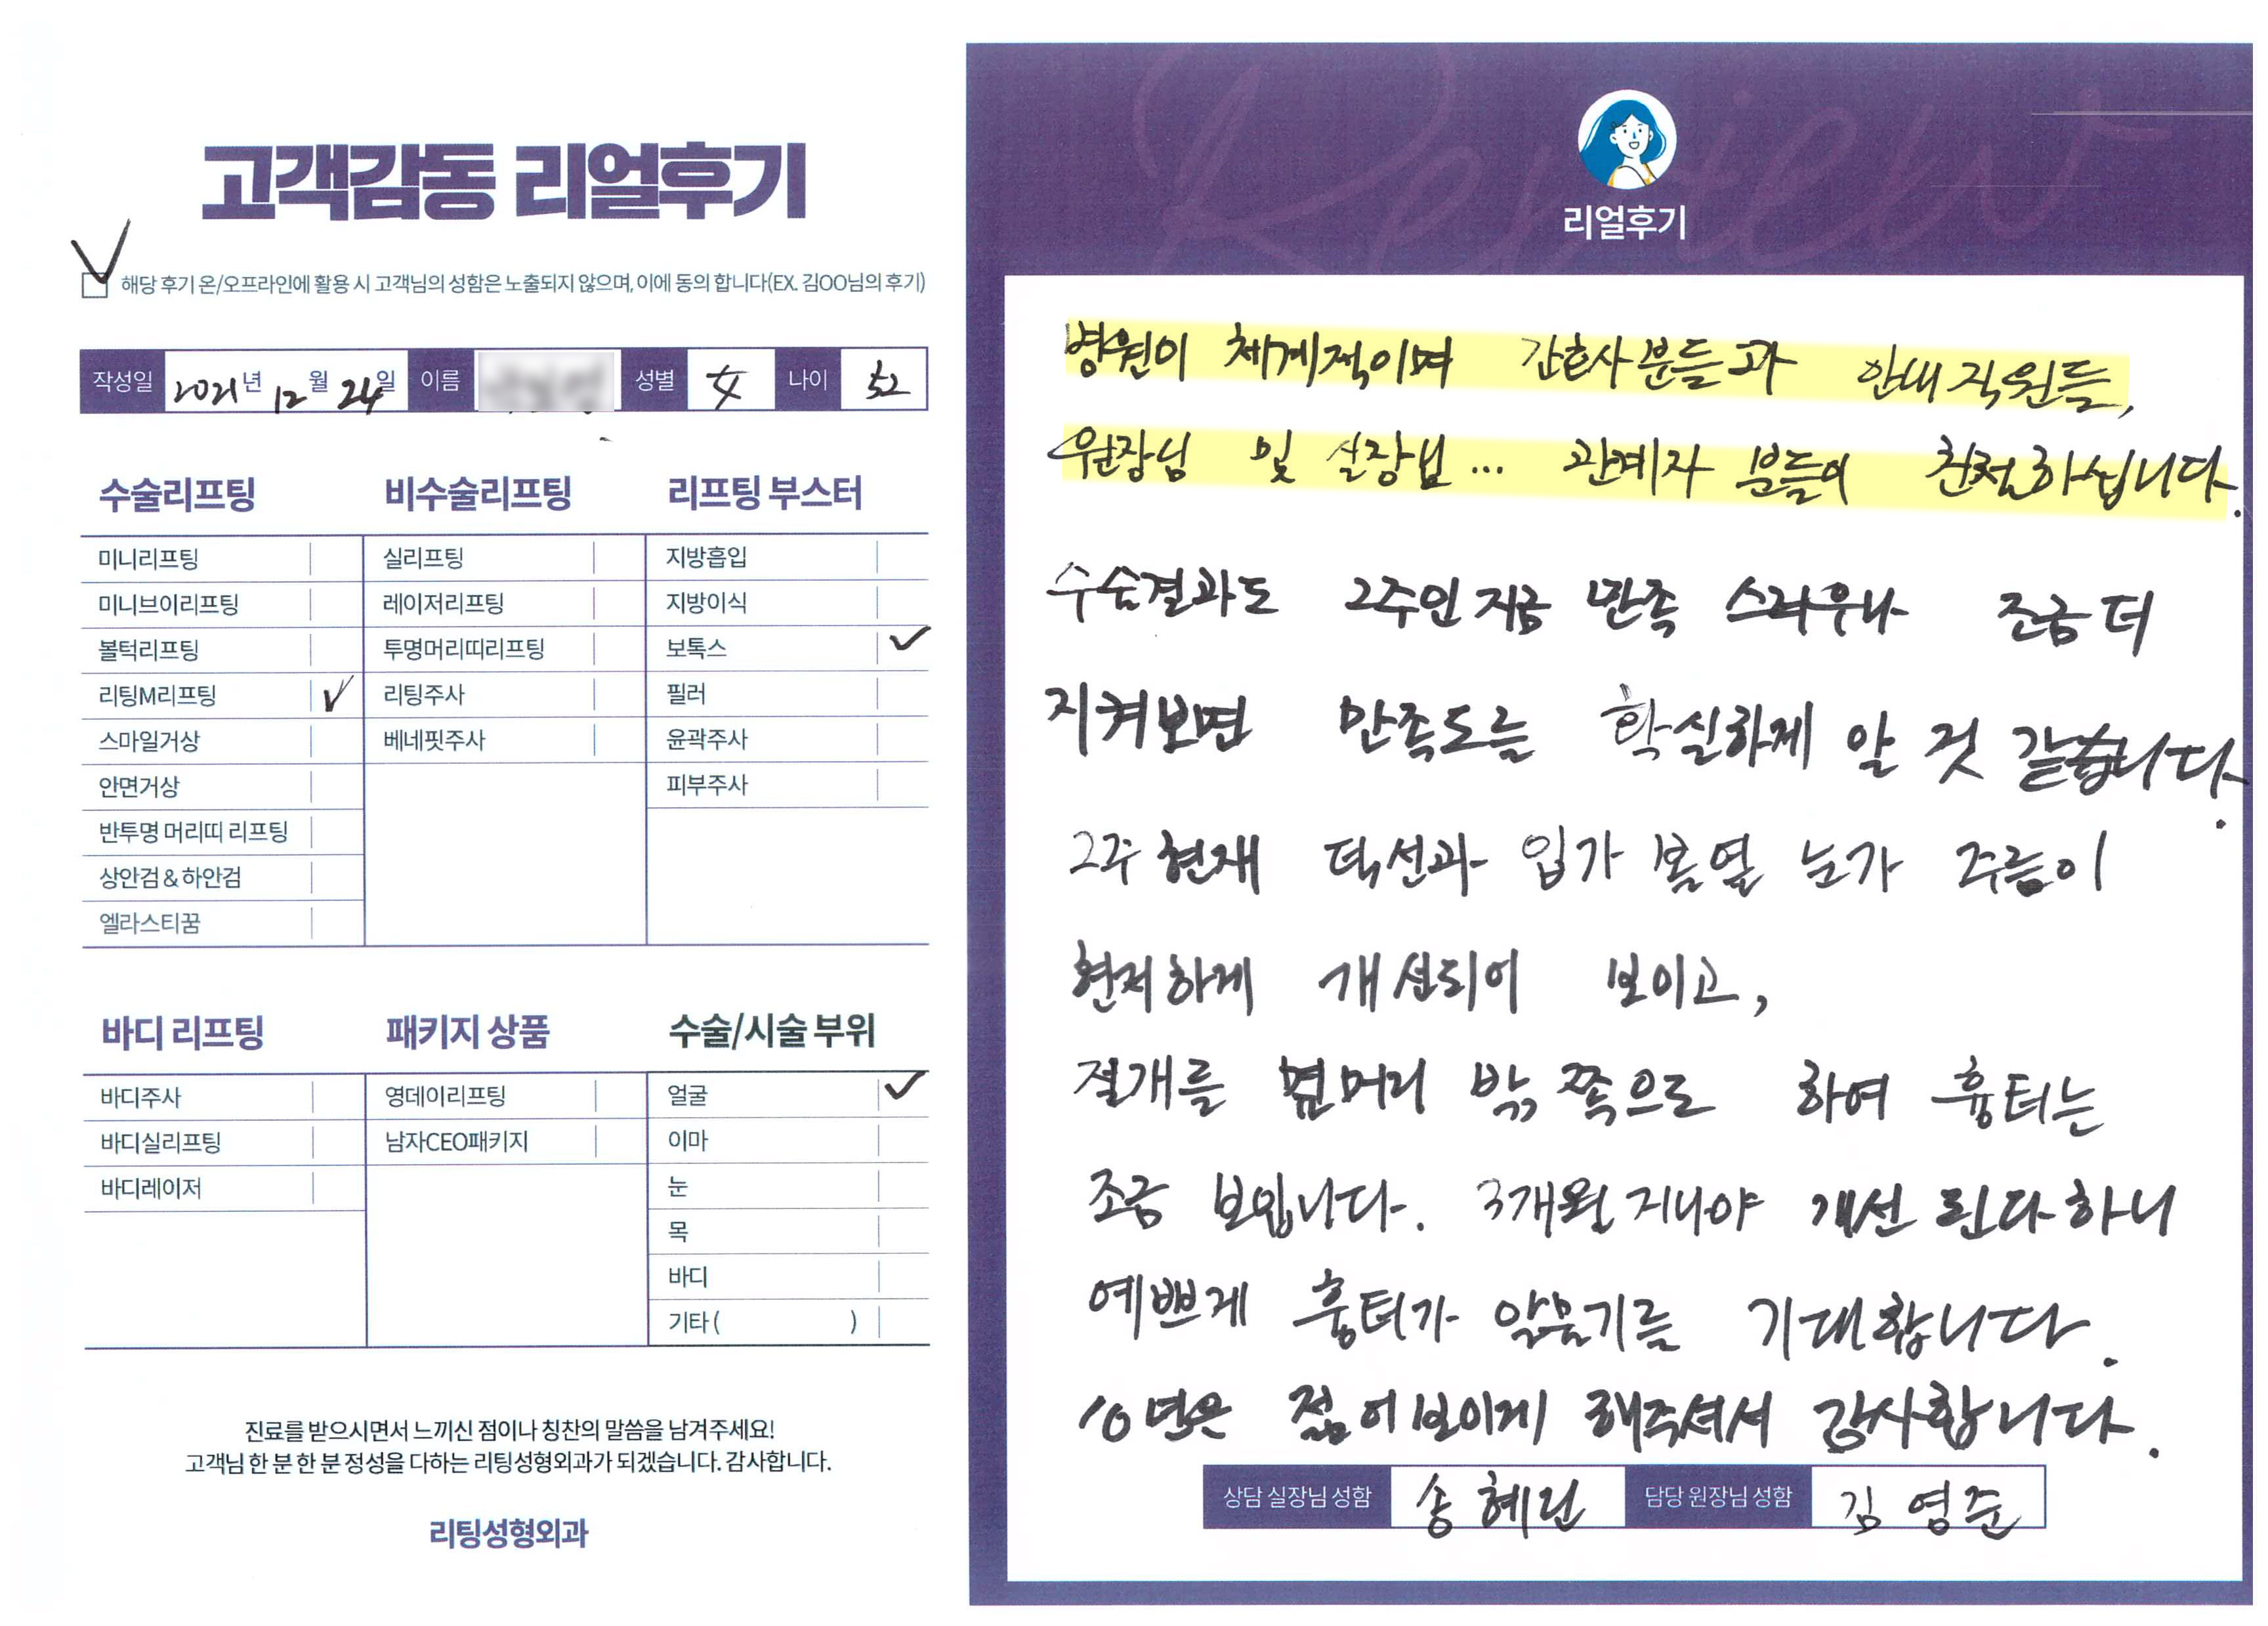 고객감동 리얼후기
해당 후기 온/오프라인에 활용 시 고객님의 성함은 노출되지 않으며, 이에 동의 합니다(EX. 김OO님의 후기)
작성일 2021년 12월 24일 이름 성별 女 나이 52
수술리프팅
미니리프팅
미니브이리프팅
볼턱리프팅
리팅M리프팅
스마일거상
안면거상
반투명 머리띠 리프팅
상안검&하안검
엘라스티꿈
비수술리프팅
실리프팅
레이저리프팅
투명머리띠리프팅
리팅주사
베네핏주사
리프팅 부스터
지방흡입
지방이식
보톡스
필러
윤곽주사
피부주사
바디 리프팅
바디주사
바디실리프팅
바디레이저
패키지 상품
영데이리프팅
남자CEO패키지
수술/시술 부위
얼굴
이마
눈
목
바디
기타( )
진료를 받으시면서 느끼신 점이나 칭찬의 말씀을 남겨주세요!
고객님 한 분 한 분 정성을 다하는 리팅성형외과가 되겠습니다. 감사합니다.
리팅성형외과
Review
리얼후기
병원이 체계적이며 간호사분들과 안내직원들,
원장님 및 실장님... 관계자 분들이 친절하십니다.
수술결과도 2주인지금 만족 스러우나 조금 더
지켜보면 만족도를 확실하게 알 것 같습니다.
2주 현재 턱선과 입가 볼옆 눈가 주름이
현저하게 개선되어 보이고,
절개를 옆머리 밖 쪽으로 하여 흉터는
조금 보입니다. 3개월 지나야 개선 된다하니
예쁘게 흉터가 아물기를 기대합니다.
10년은 젊어보이게 해주셔서 감사합니다.
상담 실장님 성함 송혜린 담당 원장님 성함 김영준